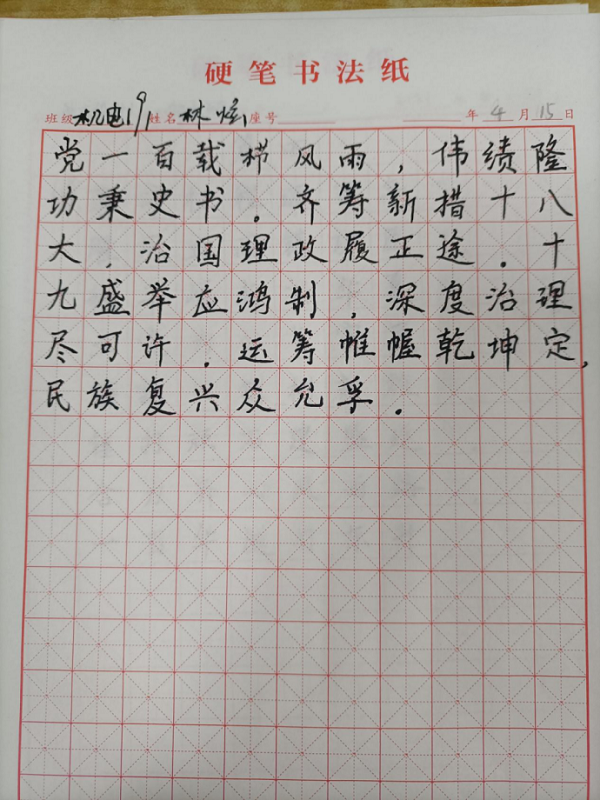 硬笔书法纸
班级机电191姓名林炫座号 年4月15日
党一百载栉风雨,伟绩隆
功秉史书。齐筹新措十八
大,治国理政履正途。十
九盛举应鸿制,深度治理
尽可许。运筹帷幄乾坤定,
民族复兴众允孚。